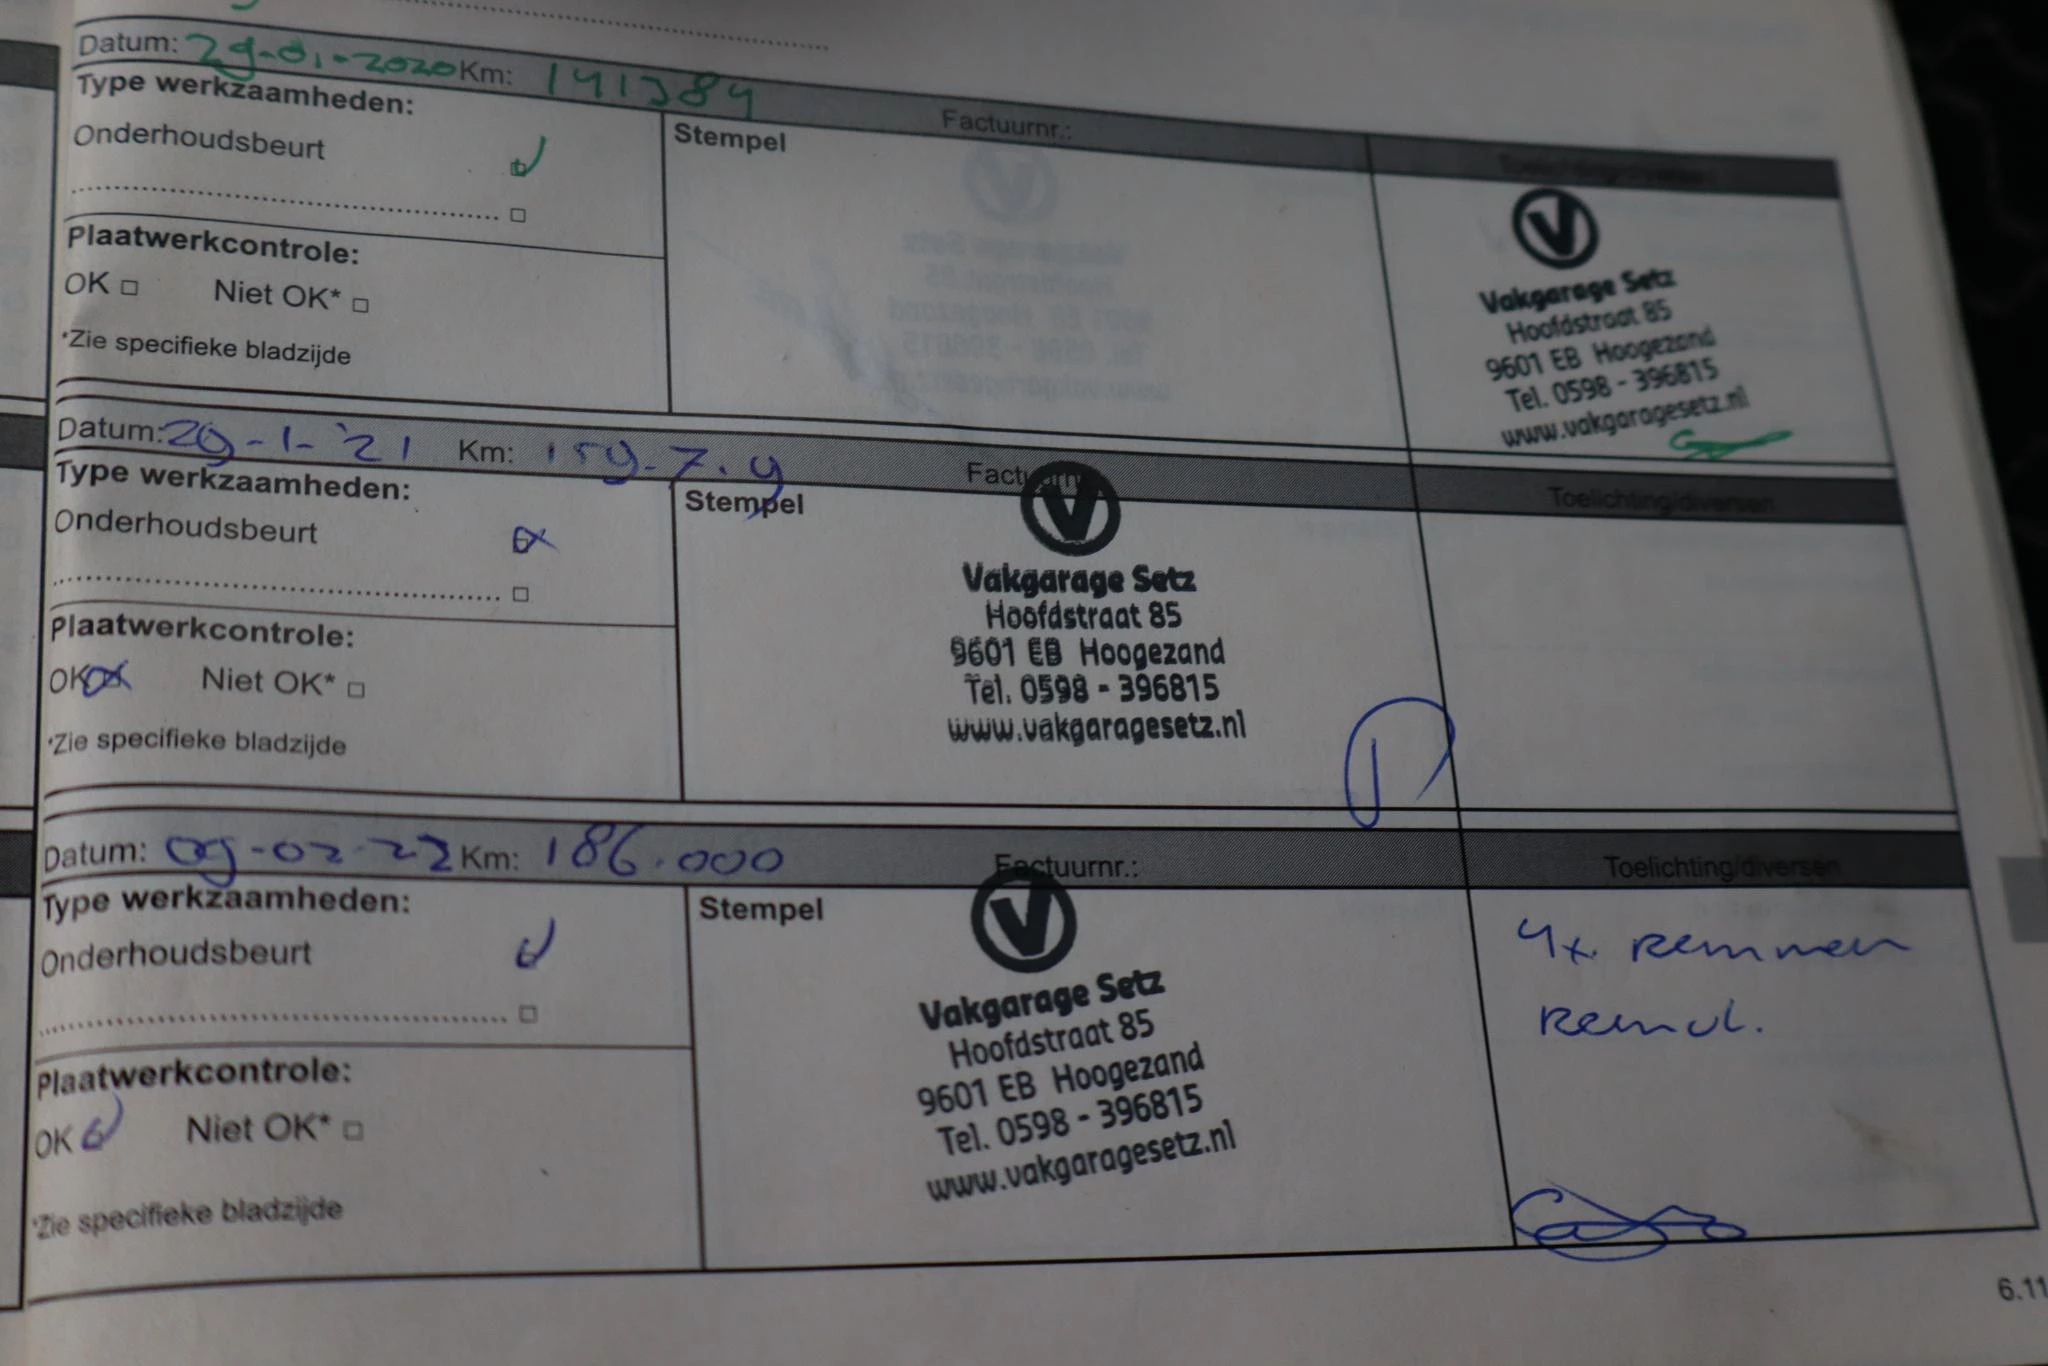 Datum: 29-01-2020 Km: 141384 Factuurnr.:
Type werkzaamheden:
Stempel
Onderhoudsbeurt
Plaatwerkcontrole:
OK Niet OK*
*Zie specifieke bladzijde
Vakgarage Setz
Hoofdstraat 85
9601 EB Hoogezand
Tel. 0598 - 396815
www.vakgaragesetz.nl
Datum: 29-1-'21 Km: Toelichting/diversen
Type werkzaamheden:
Stempel
Onderhoudsbeurt
Plaatwerkcontrole:
OK Niet OK*
*Zie specifieke bladzijde
Vakgarage Setz
Hoofdstraat 85
9601 EB Hoogezand
Tel. 0598 - 396815
www.vakgaragesetz.nl
Datum: 09-02-22 Km: 186.000 Factuurnr.: Toelichting/diversen
Type werkzaamheden:
Stempel
Onderhoudsbeurt
Plaatwerkcontrole:
OK Niet OK*
*Zie specifieke bladzijde
Vakgarage Setz
Hoofdstraat 85
9601 EB Hoogezand
Tel. 0598 - 396815
www.vakgaragesetz.nl
4x remmen
Remvl.
6.11